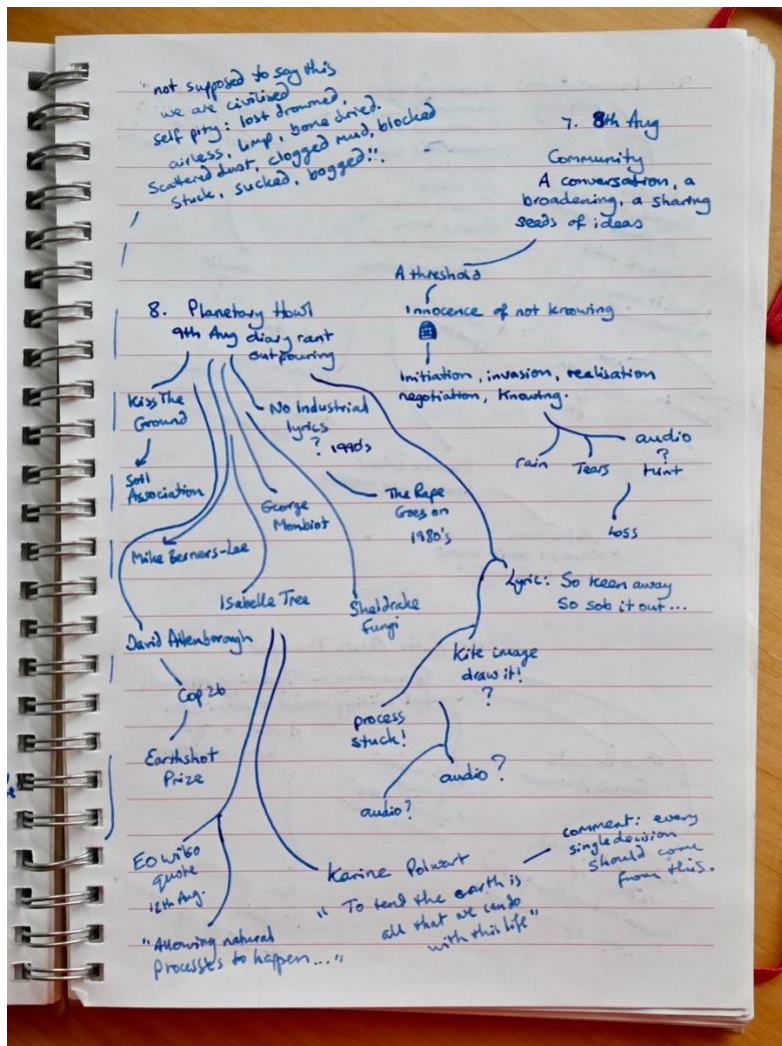 "not supposed to say this
we are civilised
self pity: lost drowned,
airless, limp, bone dried.
Scattered dust, clogged mud, blocked
Stuck, sucked, bogged!".
7. 8th Aug
Community
A conversation, a
broadening, a sharing
seeds of ideas
A threshold
Innocence of not knowing
Initiation, invasion, realisation
negotiation, knowing.
rain
Tears
audio
?
hint
Loss
8. Planetary Howl
9th Aug diary rant
outpouring
Kiss The
Ground
Soil
Association
No Industrial
lyrics
? 1990's
The Rape
Goes on
1980's
George
Monbiot
Mike Berners-Lee
Isabelle Tree
Sheldrake
Fungi
David Attenborough
Cop 26
Earthshot
Prize
Lyric: So keen away
So sob it out...
Kite image
draw it!
?
process
stuck!
audio?
audio?
EO Wilso
quote
12th Aug.
"Allowing natural
processes to happen..."
Karine Polwart
"To tend the earth is
all that we can do
with this life"
comment: every
single decision
should come
from this.